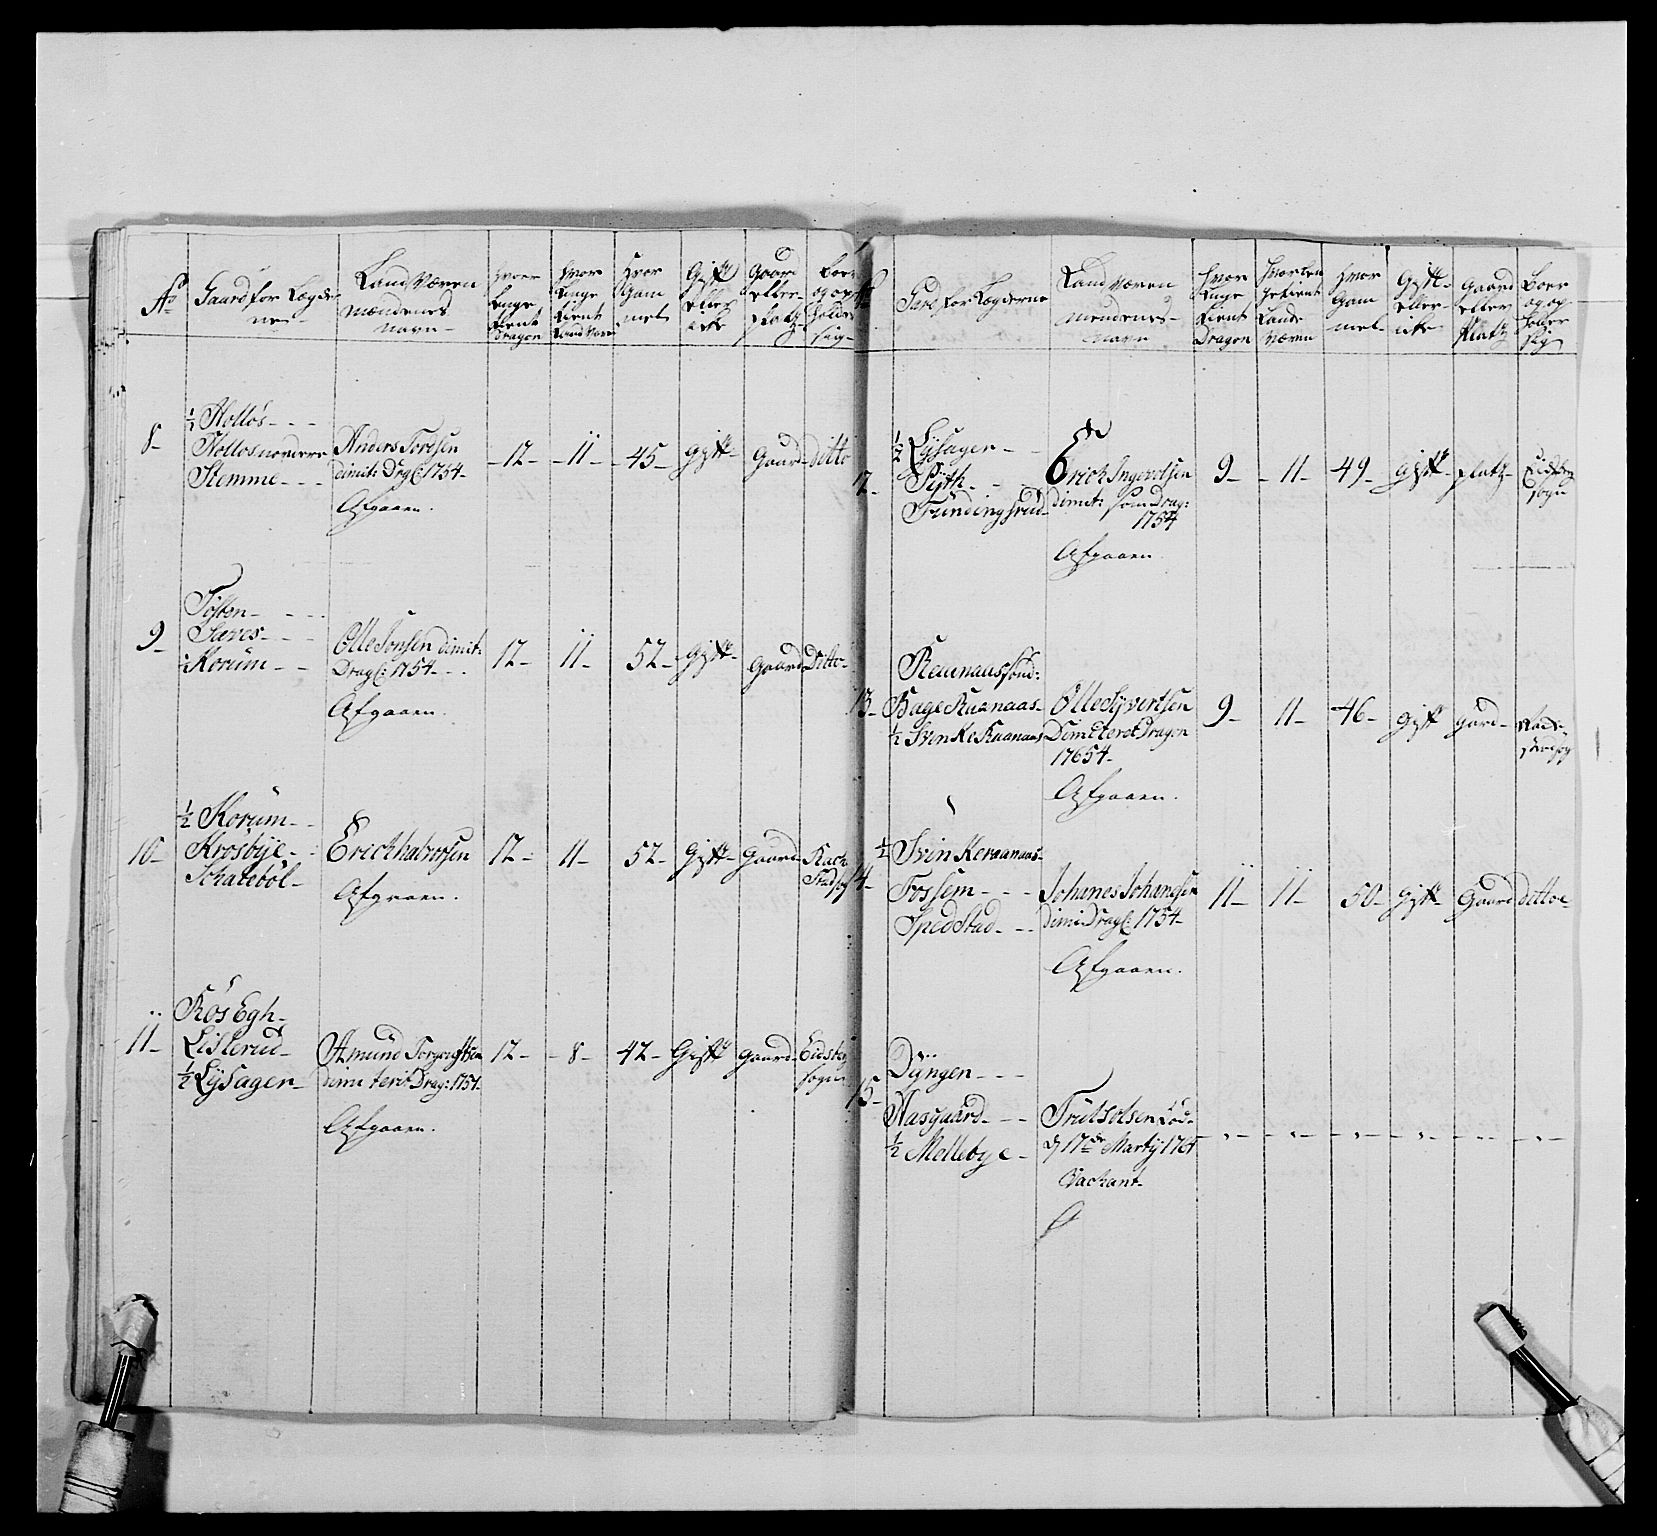 No
Gaard for Lægder
ne
Land Væren
mændenes
navn
Hvor
Længe
tient
Dragon
Hvor
Længe
tient
Land Være
Hvor
Gam
mel
Gift
eller
icke
Gaard
eller
platz
Boer
og op
holder
sig
8
1/2 Holtøs
Holtos nordere
Stemme
Anders Tordsen
dimit: Drag: 1754
Afgaaen.
12
11
45
gift
Gaard
ditto
9
Tosten
Sæves
1/2 Korum
Olle Jonsen dimit:
Drag: 1754
Afgaaen.
12
11
52
gift
Gaard
Ditto
10
1/2 Korum
Krosbye
Schalebøl
Erich halvorsen
Afgaaen.
12
11
52
Gift
Gaard
Rach
Stad sog
11
Røs Egh
Lislerud
1/2 Lysager
Amund
dimiterit Drag: 1754
Afgaaen.
12
8
42
Gift
Gaard
Eidsberg
sogn
Gard for Lægderne
Land Væren
mendenes
navn
Hvor
Længe
tient
Dragon
Hvor Len
ge tient
Lande
Væren
Hvor
Gam
mel
Gift
eller
icke
Gaard
eller
Platz
Boer
og op
holder
sig
12
1/2 Lysager
Fundingsrud
Erich Ingvoldsen
dimit: som Drag:
1754
Afgaaen
9
11
49
gift
platz
Eidsberg
sogn
13
Raanaas sønd:
Bage Raanaas
1/2 Svenke Raanaas
Olle Syvertsen
Dimiteret Dragon
17654
Afgaaen.
9
11
46
gift
gard
14
1/2 Svinkeraanaas
Fossem
Spedstad
Johanes Johanesen
dimi: Drag: 1754
Afgaaen.
11
11
50
gift
Gaard
dittoe
15
Dyngen
Aasgaard
1/2 Mellebye
Truls olsen død
d 17de Marty 1765
Vackant